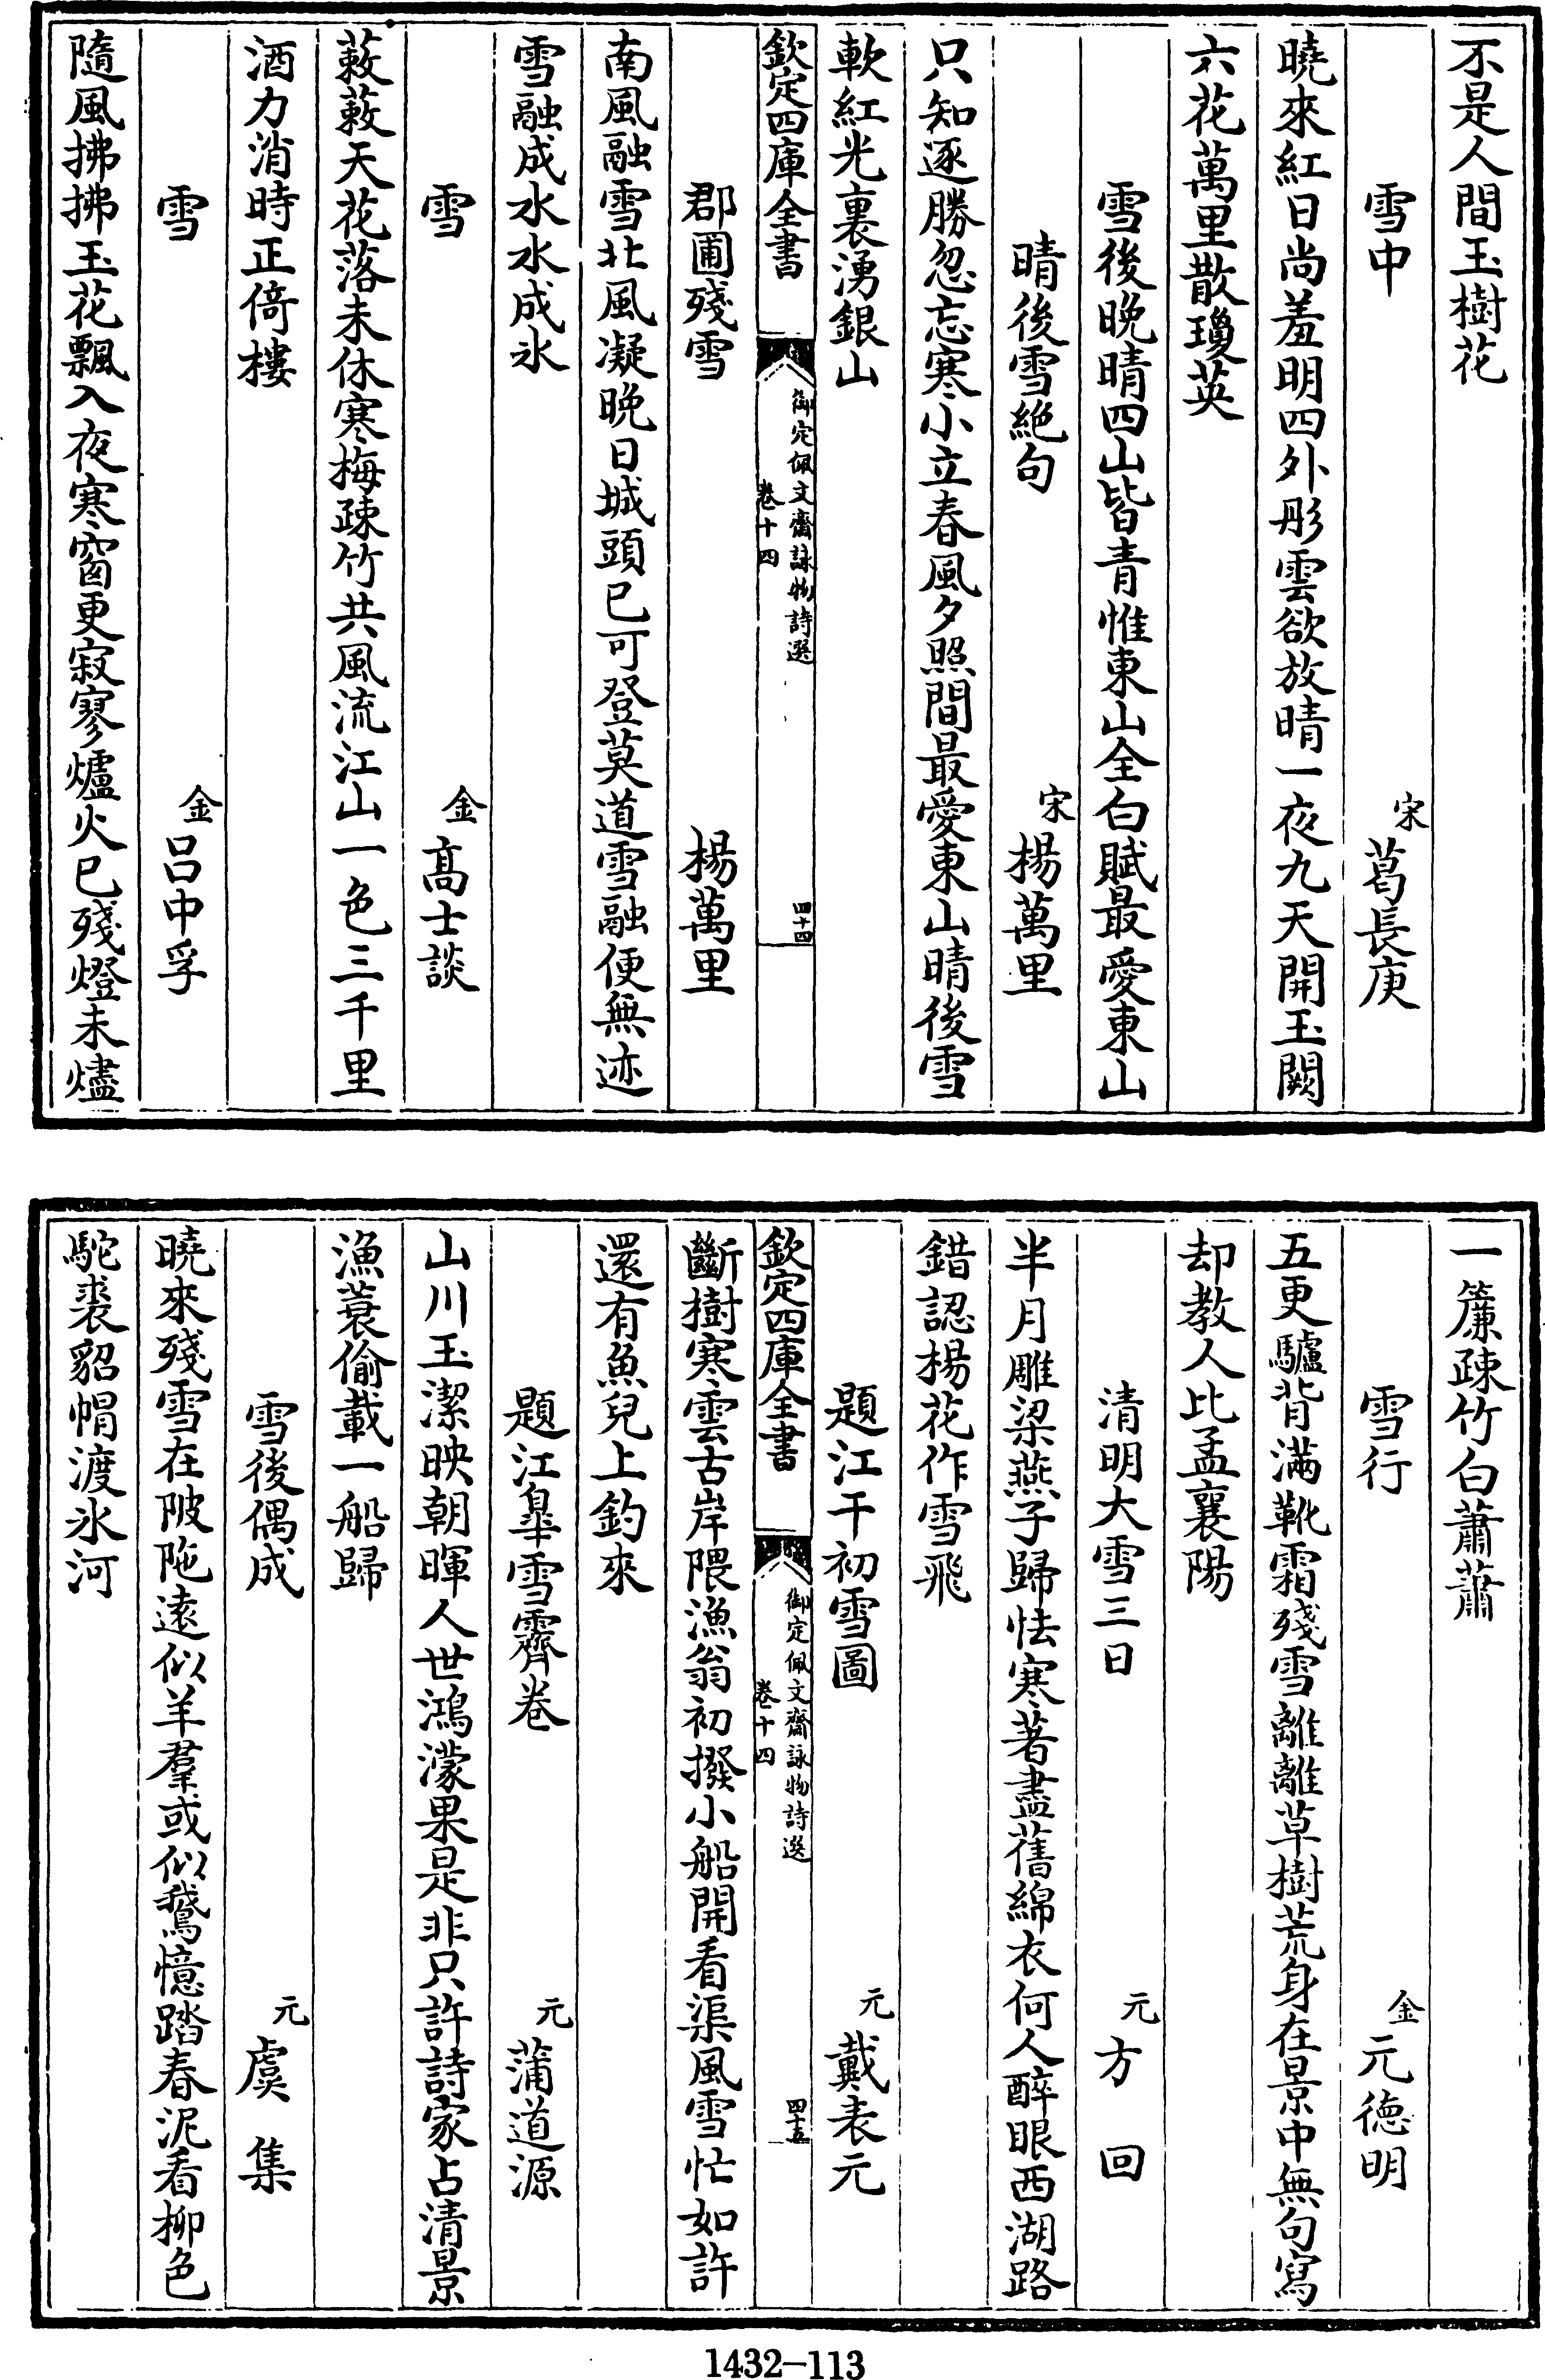 不是人間玉樹花
雪中　宋葛長庚
曉來紅日尚羞明四外彤雲欲放晴一夜九天開玉闕
六花萬里散瓊英
雪後晚晴四山皆青惟東山全白賦最愛東山
晴後雪絶句　宋楊萬里
只知逐勝忽忘寒小立春風夕照間最愛東山晴後雪
軟紅光裏湧銀山
欽定四庫全書　御定佩文齋詠物詩選　卷十四　四十四
郡圃殘雪　楊萬里
南風融雪北風凝晚日城頭已可登莫道雪融便無迹
雪融成水水成氷
雪　金高士談
蔌蔌天花落未休寒梅疎竹共風流江山一色三千里
酒力消時正倚樓
雪　金吕中孚
隨風拂拂玉花飄入夜寒窗更寂寥爐火已殘燈未燼
一簾疎竹白蕭蕭
雪行　金元德明
五更驢背滿靴霜殘雪離離草樹荒身在景中無句寫
却教人比孟襄陽
清明大雪三日　元方回
半月雕梁燕子歸怯寒著盡舊綿衣何人醉眼西湖路
錯認楊花作雪飛
題江干初雪圖　元戴表元
欽定四庫全書　御定佩文齋詠物詩選　卷十四　四十五
斷樹寒雲古岸隈漁翁初撥小船開看渠風雪忙如許
還有魚兒上釣來
題江臯雪霽卷　元蒲道源
山川玉潔映朝暉人世鴻濛果是非只許詩家占清景
漁蓑偷載一船歸
雪後偶成　元虞集
曉來殘雪在陂陁遠似羊羣或似鵞憶踏春泥看柳色
駝裘貂帽渡氷河
1432-113